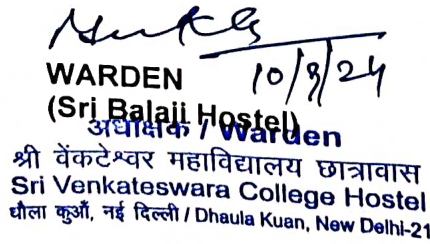 10/9/24
WARDEN
(Sri Balaji Hostel)
अधीक्षक / Warden
श्री वेंकटेश्वर महाविद्यालय छात्रावास
Sri Venkateswara College Hostel
धौला कुआँ, नई दिल्ली / Dhaula Kuan, New Delhi-21